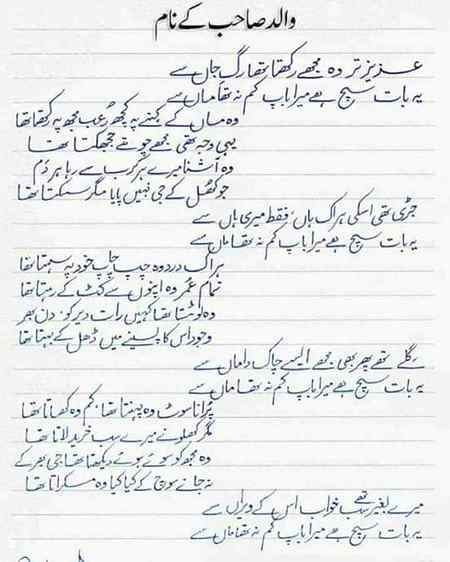 والد صاحب کے نام
عزیز تر وہ مجھے رکھتا تھا رگِ جاں سے
یہ بات سچ ہے میرا باپ کم نہ تھا ماں سے
وہ ماں کے کہنے پہ کچھ رُعب مجھ پہ رکھتا تھا
یہی وجہ تھی مجھے چومتے جھجکتا تھا
وہ آشنا میرے ہر کرب سے رہا ہر دَم
جو کھُل کے جی نہیں پایا مگر سسکتا تھا
جڑی تھی اسکی ہر اک ہاں، فقط میری ہاں سے
یہ بات سچ ہے میرا باپ کم نہ تھا ماں سے
ہر اک درد وہ چپ چاپ خود پہ سہتا تھا
تمام عُمر وہ اپنوں سے کٹ کے رہتا تھا
وہ لوٹتا تھا کہیں رات دیر کو، دن بھر
وجود اس کا پسینے میں ڈھل کے بہتا تھا
گلے تھے پھر بھی مجھے ایسے چاک داماں سے
یہ بات سچ ہے میرا باپ کم نہ تھا ماں سے
پُرانا سوٹ وہ پہنتا تھا، کم وہ کھاتا تھا
مگر کھلونے میرے سب خرید لاتا تھا
وہ مجھ کو سوئے ہوئے دیکھتا تھا جی بھر کے
نہ جانے سوچ کے کیا کیا وہ مسکراتا تھا
میرے بغیر تھے سب خواب اس کے ویراں سے
یہ بات سچ ہے میرا باپ کم نہ تھا ماں سے